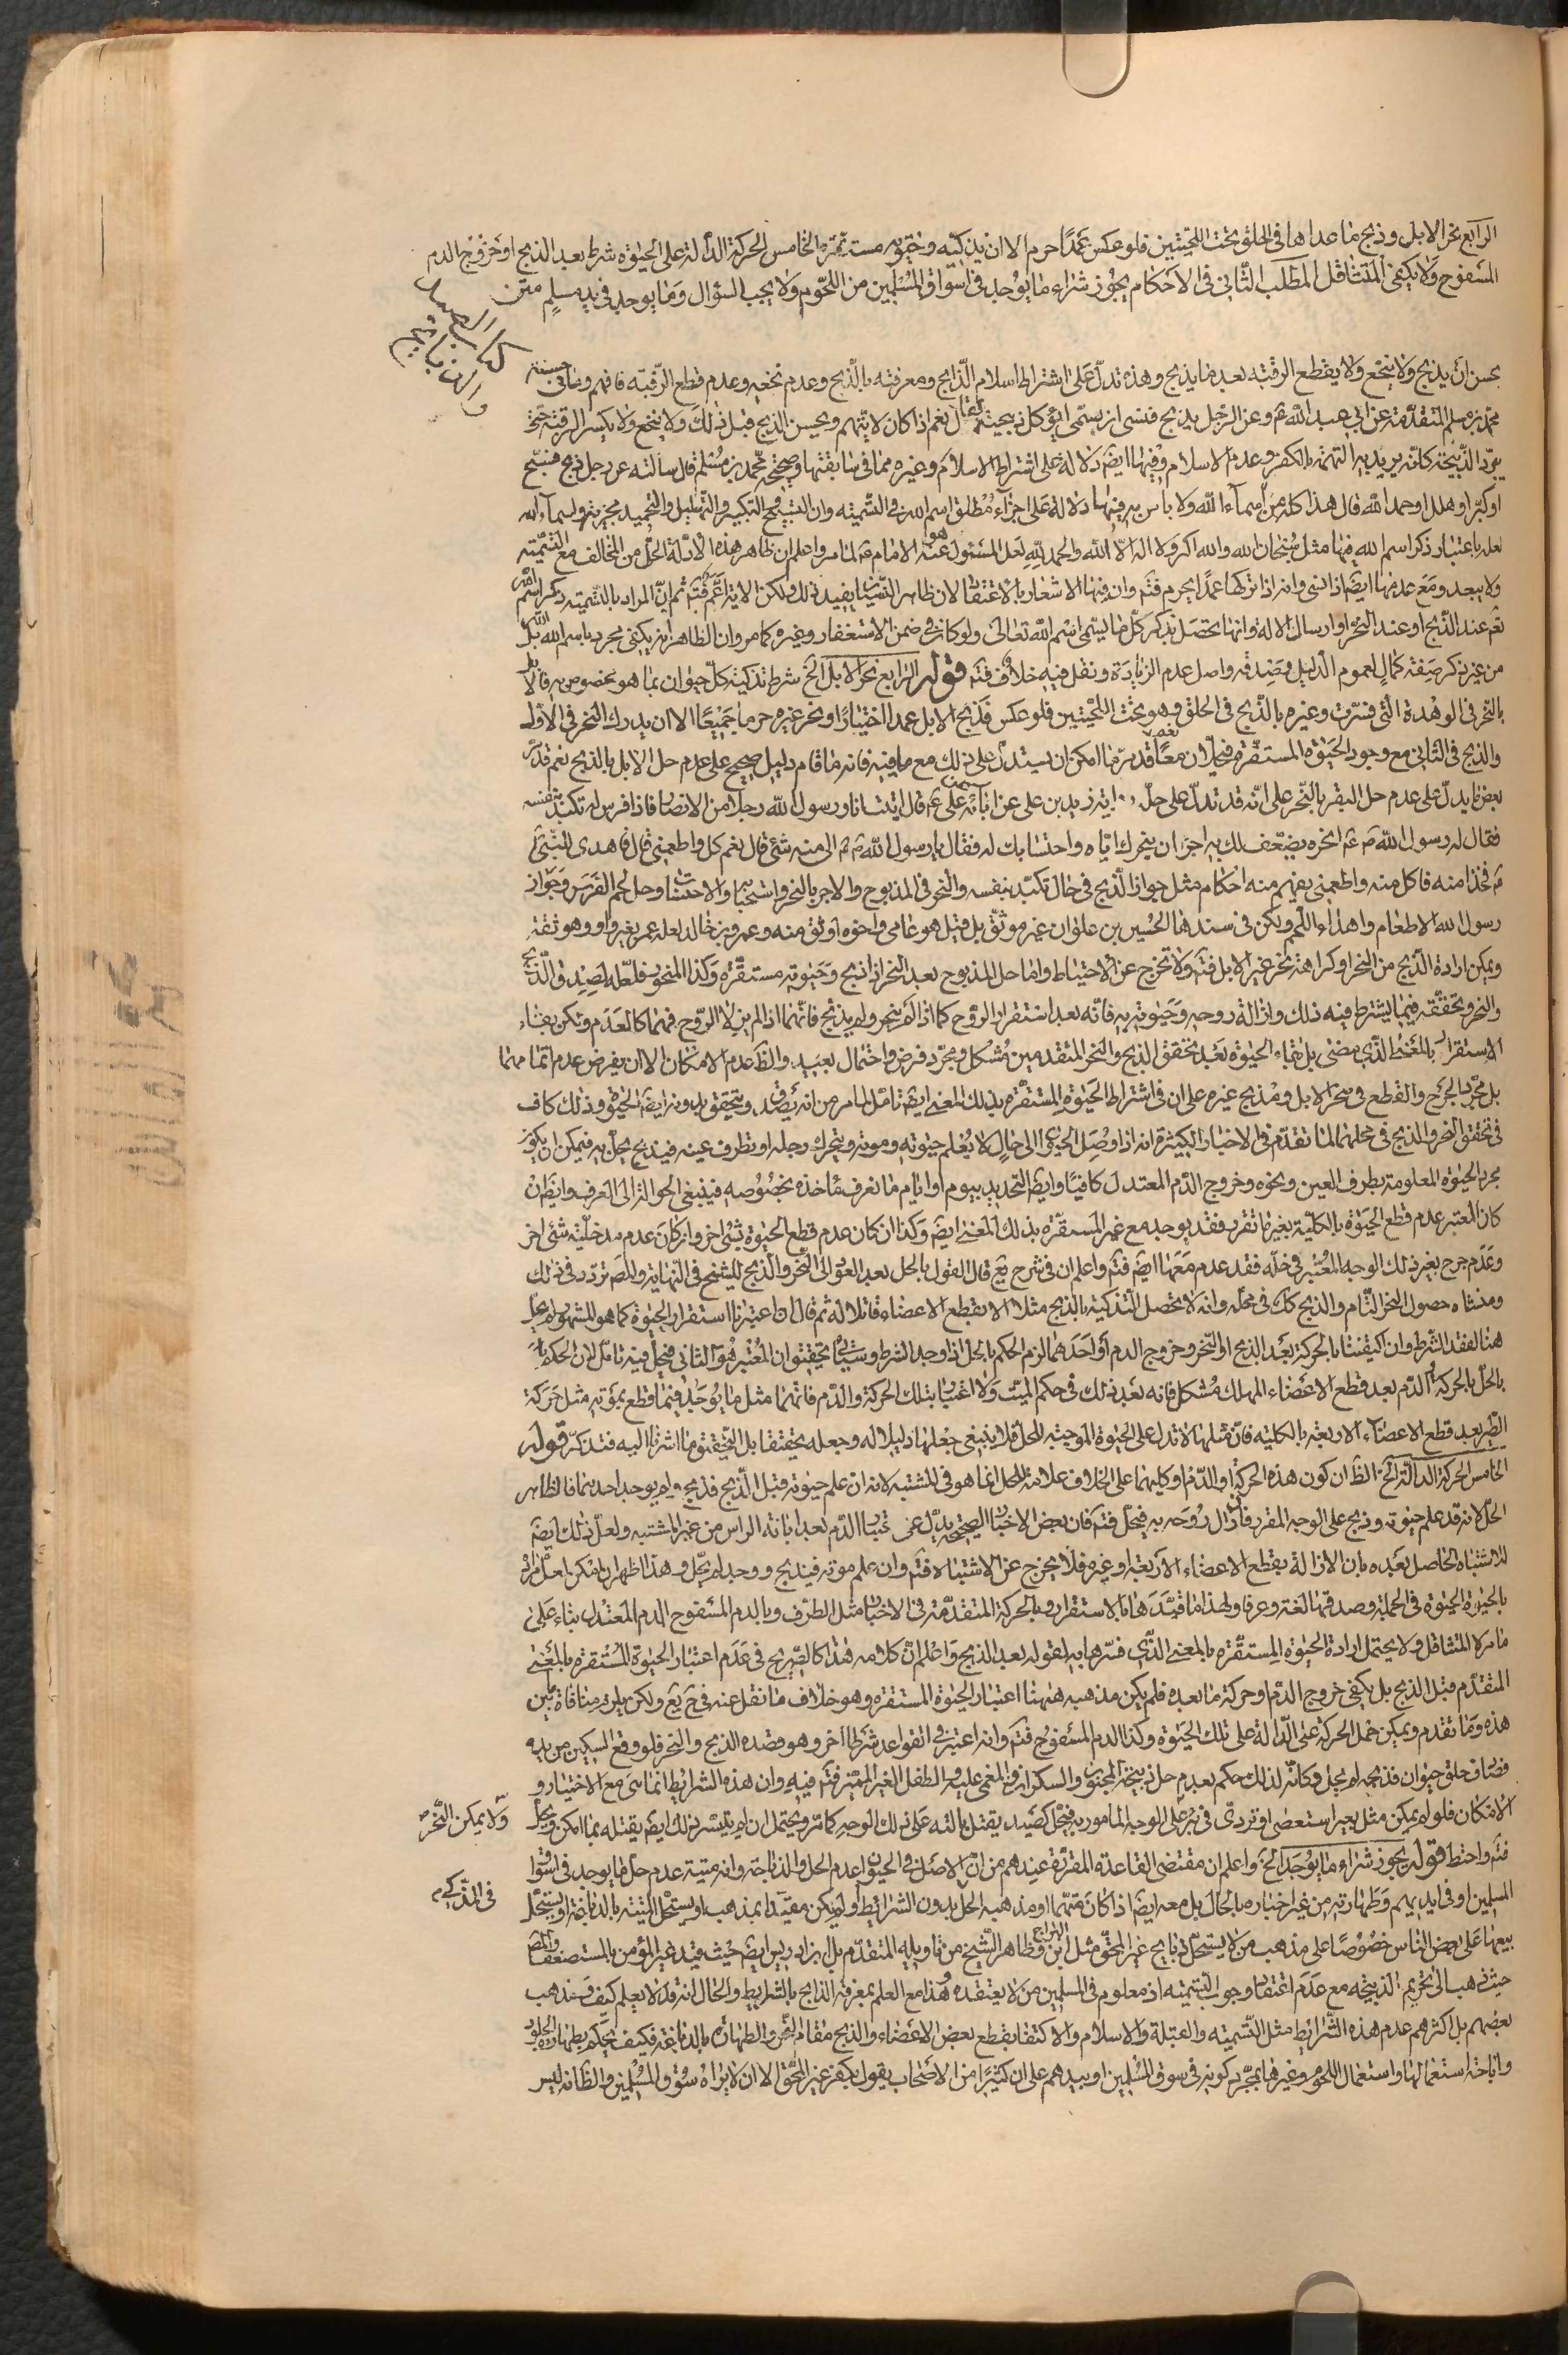 الرابع نحر الابل وذبح ما عداها فى الحلق تحت اللحيتين فلو عكس عمدا حرم الا ان يذكيه وحيوته مستقرة الخامس الحركة الدالة على الحيوة شرط بعد الذبح او خروج الدم
المسفوح ولا يكفى المتثاقل المطلب الثانى فى الاحكام يجوز شراء ما يوجد فى اسواق المسلمين من اللحوم ولا يجب السؤال وما يوجد فى يد مسلم متن
كتاب الصيد
والذبايح
يحسن ان يذبح ولا ينخع ولا يقطع الرقبة بعد ما يذبح وهذه تدل على اشتراط اسلام الذابح ومعرفته بالذبح وعدم نخعه وعدم قطع الرقبة فافهم وما فى حسنة
محمد بن مسلم المتقدمة عن ابى عبد الله ع وعن الرجل يذبح فنسى ان يسمى ايؤكل ذبيحته فقال نعم اذا كان لا يتهم ويحسن الذبح قبل ذلك ولا ينخع ولا يكسر الرقبة حتى
يبرد الذبيحة كانه يريد به التهمة بالكفر وعدم الاسلام وفيها ايضا دلالة على اشتراط الاسلام وغيره مما فى سابقتها وصحيحة محمد بن مسلم قال سالته عن رجل ذبح فسبح
او كبر او هلل او حمد الله قال هذا كله من اسماء الله ولا باس به فيها دلالة على اجزاء مطلق اسم الله فى التسمية وان التسبيح والتكبير والتهليل والتحميد مجزية ولسماء الله
لعله باعتبار ذكر اسم الله فيها مثل سبحان الله والله اكبر ولا اله الا الله والحمد لله لعل المسئول عنه هو الامام ع لما مر واعلم ان ظاهر هذه الادلة الحل من المخالف مع التسمية
ولا يبعد ومع عدمها ايضا اذا نسى وانه اذا تركها عمدا يحرم فتم وان فيها الاشعار بالاعتقاد لان ظاهر النسيان يفيد ذلك ولكن الاية اعم فتم ثم ان المراد بالتسمية ذكر اسم الله
تعم عند الذبح او عند النحر او ارسال الالة وانها يحصل بذكر كل ما يسمى اسم الله تعالى ولو كان فى ضمن الاستغفار وغيره كما مر وان الظاهر انه يكفى مجرد باسم الله بل الله
من غير ذكر صفة كمال لعموم الدليل وصدقه واصل عدم الزيادة ونقل فيه خلاف فتم قوله الرابع نحر الابل الخ شرط تذكية كل حيوان بما هو مخصوص به فالابل
بالنحر فى الوهدة التى فسرت وغيره بالذبح فى الحلق وهو تحت اللحيتين فلو عكس فذبح الابل عمدا اختيارا او نحر غيره حرما جميعا الا ان يدرك النحر فى الاول
والذبح فى الثانى مع وجود الحيوة المستقرة فيحلان معا قد مر ما امكن ان يستدل على ذلك مع ما فيه فانه ما قام دليل صحيح على عدم حل الابل بالذبح نعم قد مر
بعض ما يدل على عدم حل البقر بالنحر على انه قد تدل على حل رواية زيد بن على عن ابائه عن على ع قال اتيت انا ورسول الله رجلا من الانصار فاذا فرس له تكبد بنفسه
فقال له رسول الله ص انحره يضعف لك به اجران بنحرك اياه واحتسابك له فقال يا رسول الله ص الى منه شئ قال نعم كل واطعمنى قال فاهدى للنبى
ص فخذا منه فاكل منه واطعمنى يفهم منه احكام مثل جواز الذبح فى حال تكبد بنفسه والنحر فى المذبوح والاجر بالنحر واستحبابه والاحتساب وحل لحم الفرس وجواز
رسول الله الاطعام واهداء اللحم ولكن فى سندها الحسين بن علوان غير موثق بل قيل هو عامى واخوه اوثق منه وعمرو بن خالد لعله عمر بغير واو وهو ثقة
ويمكن ارادة الذبح من النحر او كراهة نحر غير الابل فتم ولا تخرج عن الاحتياط واما حل المذبوح بعد النحر اذا ذبح وحيوته مستقرة وكذا المنحور فلعله لصدق الذبح
والنحر وتحققه فيما يشترط فيه ذلك وازالة روحه وحيوته به فانه بعد استقرار الروح كما اذا لم ينحر ولم يذبح فانهما اذا لم يزيلا الروح فهما كالعدم ولكن بقاء
الاستقرار بالمعنى الذى مضى بل بقاء الحيوة بعد تحقق الذبح والنحر المتقدمين مشكل ومجرد فرض واحتمال بعيد والظ عدم الامكان الا ان يفرض عدم اتمامهما
بل مجرد الجرح والقطع فى منحر الابل ومذبح غيره على ان فى اشتراط الحيوة المستقرة بذلك المعنى ايضا تامل لما مر من انه يصدق ويتحقق بدونه ايضا الحيوة وذلك كاف
فى تحقق النحر والذبح فى محلهما لما تقدم فى الاخبار الكثيرة انه اذا وصل الحيوان الى حال لا يعلم حيوته وموته ويتحرك رجله او يطرف عينه فيذبح يحل به فيمكن ان يكون
مجرد الحيوة المعلومة بطرف العين ونحوه وخروج الدم المعتدل كافيا وايضا التحديد بيوم او ايام ما نعرف ماخذه بخصوصه فينبغى الحوالة الى العرف وايضا ان
كان المعتبر عدم قطع الحيوة بالكلية بغير ما تقرر فقد يوجد مع غير المستقرة بذلك المعنى ايضا وكذا ان كان عدم قطع الحيوة بشئ اخر وان كان عدم مدخلية شئ اخر
وعدم جرح بغير ذلك الوجه المعتبر فى حله فقد عدم معها ايضا فتم واعلم ان فى شرح يع قال القول بالحل بعد العود الى النحر والذبح للشيخ فى النهاية والمص تردد فى ذلك
ومنشاه حصول النحر التام والذبح كك فى محله وانه لا يحصل التذكية بالذبح مثلا الا بقطع الاعضاء قاتلا له ثم قال ان اعتبرنا استقرار الحيوة كما هو المشهور لم يحل
هنا لفقد الشرط وان اكتفينا بالحركة بعد الذبح او النحر وخروج الدم او احدهما لزم الحكم بالحل اذا وجد الشرط وسياتى تحقيق ان المعتبر هو الثانى فيحل فيه تامل لان الحكم
بالحل بالحركة او الدم بعد قطع الاعضاء المهلك مشكل فانه بعد ذلك فى حكم الميت ولا اعتبار بتلك الحركة والدم فانهما مثل ما يوجد فيما قطع بموته مثل حركة
الطير بعد قطع الاعضاء الاربعة بالكلية فان مثلها لا تدل على الحيوة الموجبة للحل فلا ينبغى جعلها دليلا له وجعله تحقيقا بل التحقيق ما اشرنا اليه فتذكر قوله
الخامس الحركة الدالة الخ الظ ان كون هذه الحركة او الدم او كليهما على الخلاف علامة للحل انما هو فى المشتبه لانه ان علم حيوته قبل الذبح فذبح ولم يوجد احدهما فالظاهر
الحل لانه قد علم حيوته وذبح على الوجه المقرر فازال روحه به فيحل فتم فان بعض الاخبار الصحيحة يدل على اعتبار الدم بعد ابانة الراس من غير المشتبه ولعل ذلك ايضا
للاشتباه الحاصل بعده بان الازالة بقطع الاعضاء الاربعة او غيره فلا يخرج عن الاشتباه فتم وان علم موته فيذبح ووجد لم يحل وهذا ظاهر
بالحيوة الحيوة فى الجملة وصدقها لغة وعرفا ولهذا ما قيدها بالاستقرار وبالحركة المتقدمة فى الاخبار مثل الطرف وبالدم المسفوح الدم المعتدل بناء على
ما مر لا المتثاقل ولا يحتمل ارادة الحيوة المستقرة بالمعنى الذى فسرها به لقوله بعد الذبح واعلم ان كلامه هذا كالصريح فى عدم اعتبار الحيوة المستقرة بالمعنى
المتقدم قبل الذبح بل يكفى خروج الدم او حركة ما بعده فلم يكن مذهبه ههنا اعتبار الحيوة المستقرة وهو خلاف ما نقل عنه فى ح يع ولكن يلزم منافاة بين
هذه وما تقدم ويمكن حمل الحركة على الدالة على تلك الحيوة وكذا الدم المسفوح فتم وانه اعتبر فى القواعد شرطا اخر وهو قصده الذبح والنحر فلو وقع السكين من يده
فصادف حلق حيوان فذبحه لم يحل وكانه لذلك حكم بعدم حل ذبيحة المجنون والسكران والمغمى عليه والطفل الغير المميز فتم فيه وان هذه الشرايط انما هى مع الاختيار و
الامكان فلو لم يمكن مثل بعير استعصى او تردى فى بئر على الوجه المامور به فيحل كصيد يقتل بالته على ذلك الوجه كما مر ويحتمل ان لم يتيسر ذلك ايضا يقتله بما امكن ويحل
ولا يمكن النحر
فتم واحتط قوله يجوز شراء ما يوجد الخ واعلم ان مقتضى القاعدة المقررة عندهم من ان الاصل فى الحيوان عدم الحل والذباحة وانه ميتة عدم حل ما يوجد فى اسواق
فى المذكى
المسلمين او فى ايديهم وطهارته من غير اختباره بالحال بل معه ايضا اذا كان متهما او مذهبه الحل بدون الشرائط او لم يكن مقيدا بمذهب او يستحل الميتة بالدباغة او يستحل
بيعها على بعض الناس خصوصا على مذهب من لا يستحل ذبايح غير المحق مثل ابن البراج وظاهر الشيخ من تاويليه المتقدم بل ابن ادريس ايضا حيث قيد غير المؤمن بالمستضعف والمص
حيث ذهب الى تحريم الذبيحة مع عدم اعتقاد وجوب التسمية اذ معلوم فى المسلمين من لا يعتقده وهذا مع العلم بمعرفة الذابح بالشرايط والحال انه قد لا يعلم كيف ومذهب
بعضهم بل اكثرهم عدم هذه الشرايط مثل التسمية والقبلة والاسلام والاكتفا بقطع بعض الاعضاء والذبح مقام النحر والطهارة بالدباغة فكيف يحكم بطهارة الجلود
واباحة استعمالها واستعمال اللحوم وغيرها بمجرد كونه فى سوق المسلمين او بيدهم على ان كثيرا من الاصحاب يقول بكفر غير المحق الا ان لا يراه سوق المسلمين والظ انه ليس